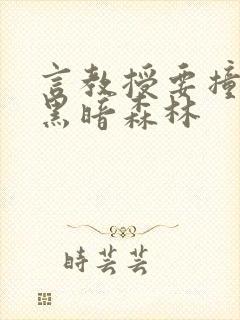 言教授要撞
黑暗森林
時芸芸